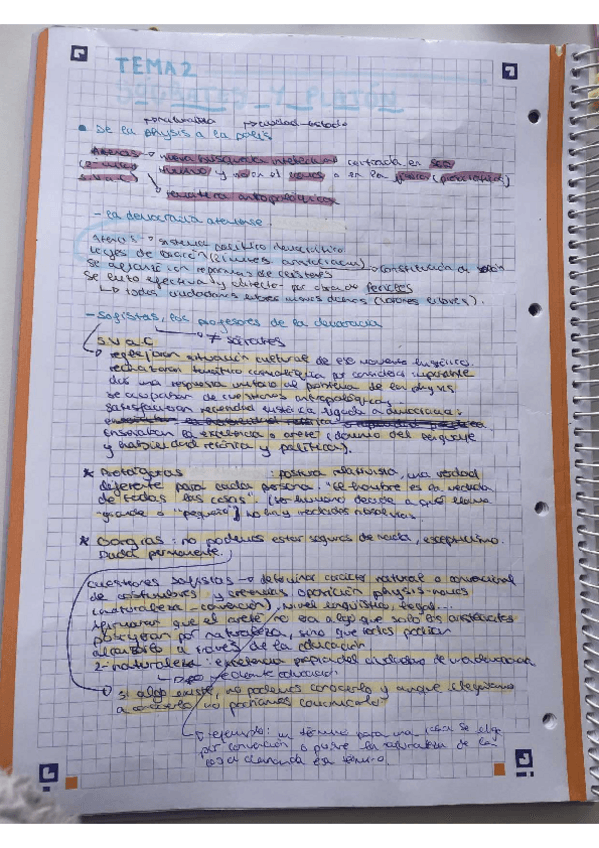 TEMA 2
SÓCRATES Y PLATÓN
naturaleza → ciudad-estado
• De la physis a la polis
Atenas → nueva búsqueda intelectual centrada en
y no en el o en la physis
temática antropológica
- La democracia ateniense
Atenas → sistema político democrático
Leyes de Dracón → constitución de Solón
Se alcanzó con reformas de Clístenes
Se hizo efectiva y directa por obra de Pericles
↳ todos ciudadanos libres mismos derechos
- Sofistas, los profesores de la democracia
S. V a.C → ≠ Sócrates
reflejaron situación cultural de ese momento
dar una respuesta unitaria al problema de la physis
Se ocupaban de cuestiones antropológicas
satisfacían necesidad ligada a democracia:
Enseñaban la excelencia o areté (dominio del lenguaje
y habilidad retórica y política).
* Protágoras : postura relativista, una verdad
diferente para cada persona. "el hombre es la medida
de todas las cosas". (ser humano decide a qué llama
grande o "pequeño") no hay verdades absolutas
* Gorgias: no podemos estar seguros de nada, escepticismo.
Duda permanente.
Cuestiones sofistas → determinar carácter natural o convencional
de costumbres y creencias oposición physis-nomos
(naturaleza - convención), nivel lingüístico, legal...
Afirmaron que el areté no era algo que solo los aristócratas
poseyeran por naturaleza, sino que todos podían
alcanzarlo a través de la educación
2ª naturaleza: excelencia propia del ciudadano de una democracia
↳ mediante educación
si algo existe, no podemos conocerlo y aunque llegáramos
a conocerlo no podríamos comunicarlo
ejemplo: un término para una cosa se elige
por convención o porque la naturaleza de la
cosa demanda ese término.